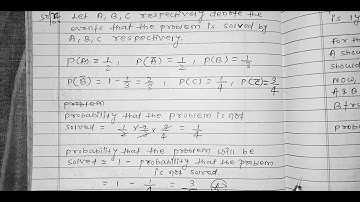 Let A, B, C respectively denote the
events that the problem is solved by
A, B, C respectively.
P(A) = 1/2, P(A̅) = 1/2, P(B) = 1/3
P(B̅) = 1 - 1/3 = 2/3, P(C) = 1/4, P(C̅) = 3/4
problem
probability that the problem is not
solved = 1/2 × 2/3 × 3/4 = 1/4
probability that the problem will be
solved = 1 - probability that the problem
is not solved.
= 1 - 1/4 = 3/4
is ly
for th
A shou
Should
Now,
A & B
probl